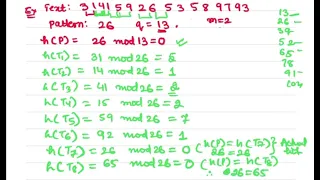 Ex Text: 3 1 4 1 5 9 2 6 5 3 5 8 9 7 9 3
Pattern: 26 q = 13. m=2
h(P) = 26 mod 13 = 0
h(T1) = 31 mod 26 = 5
h(T2) = 14 mod 26 = 1
h(T3) = 41 mod 26 = 2
h(T4) = 15 mod 26 = 2
h(T5) = 59 mod 26 = 7
h(T6) = 92 mod 26 = 1
h(T7) = 26 mod 26 = 0 (h(P) = h(T7)} Actual
h(T8) = 65 mod 26 = 0 (∵ h(P) = h(T8)
26=65
13 —
26 —
39
52 —
65 —
78
91 —